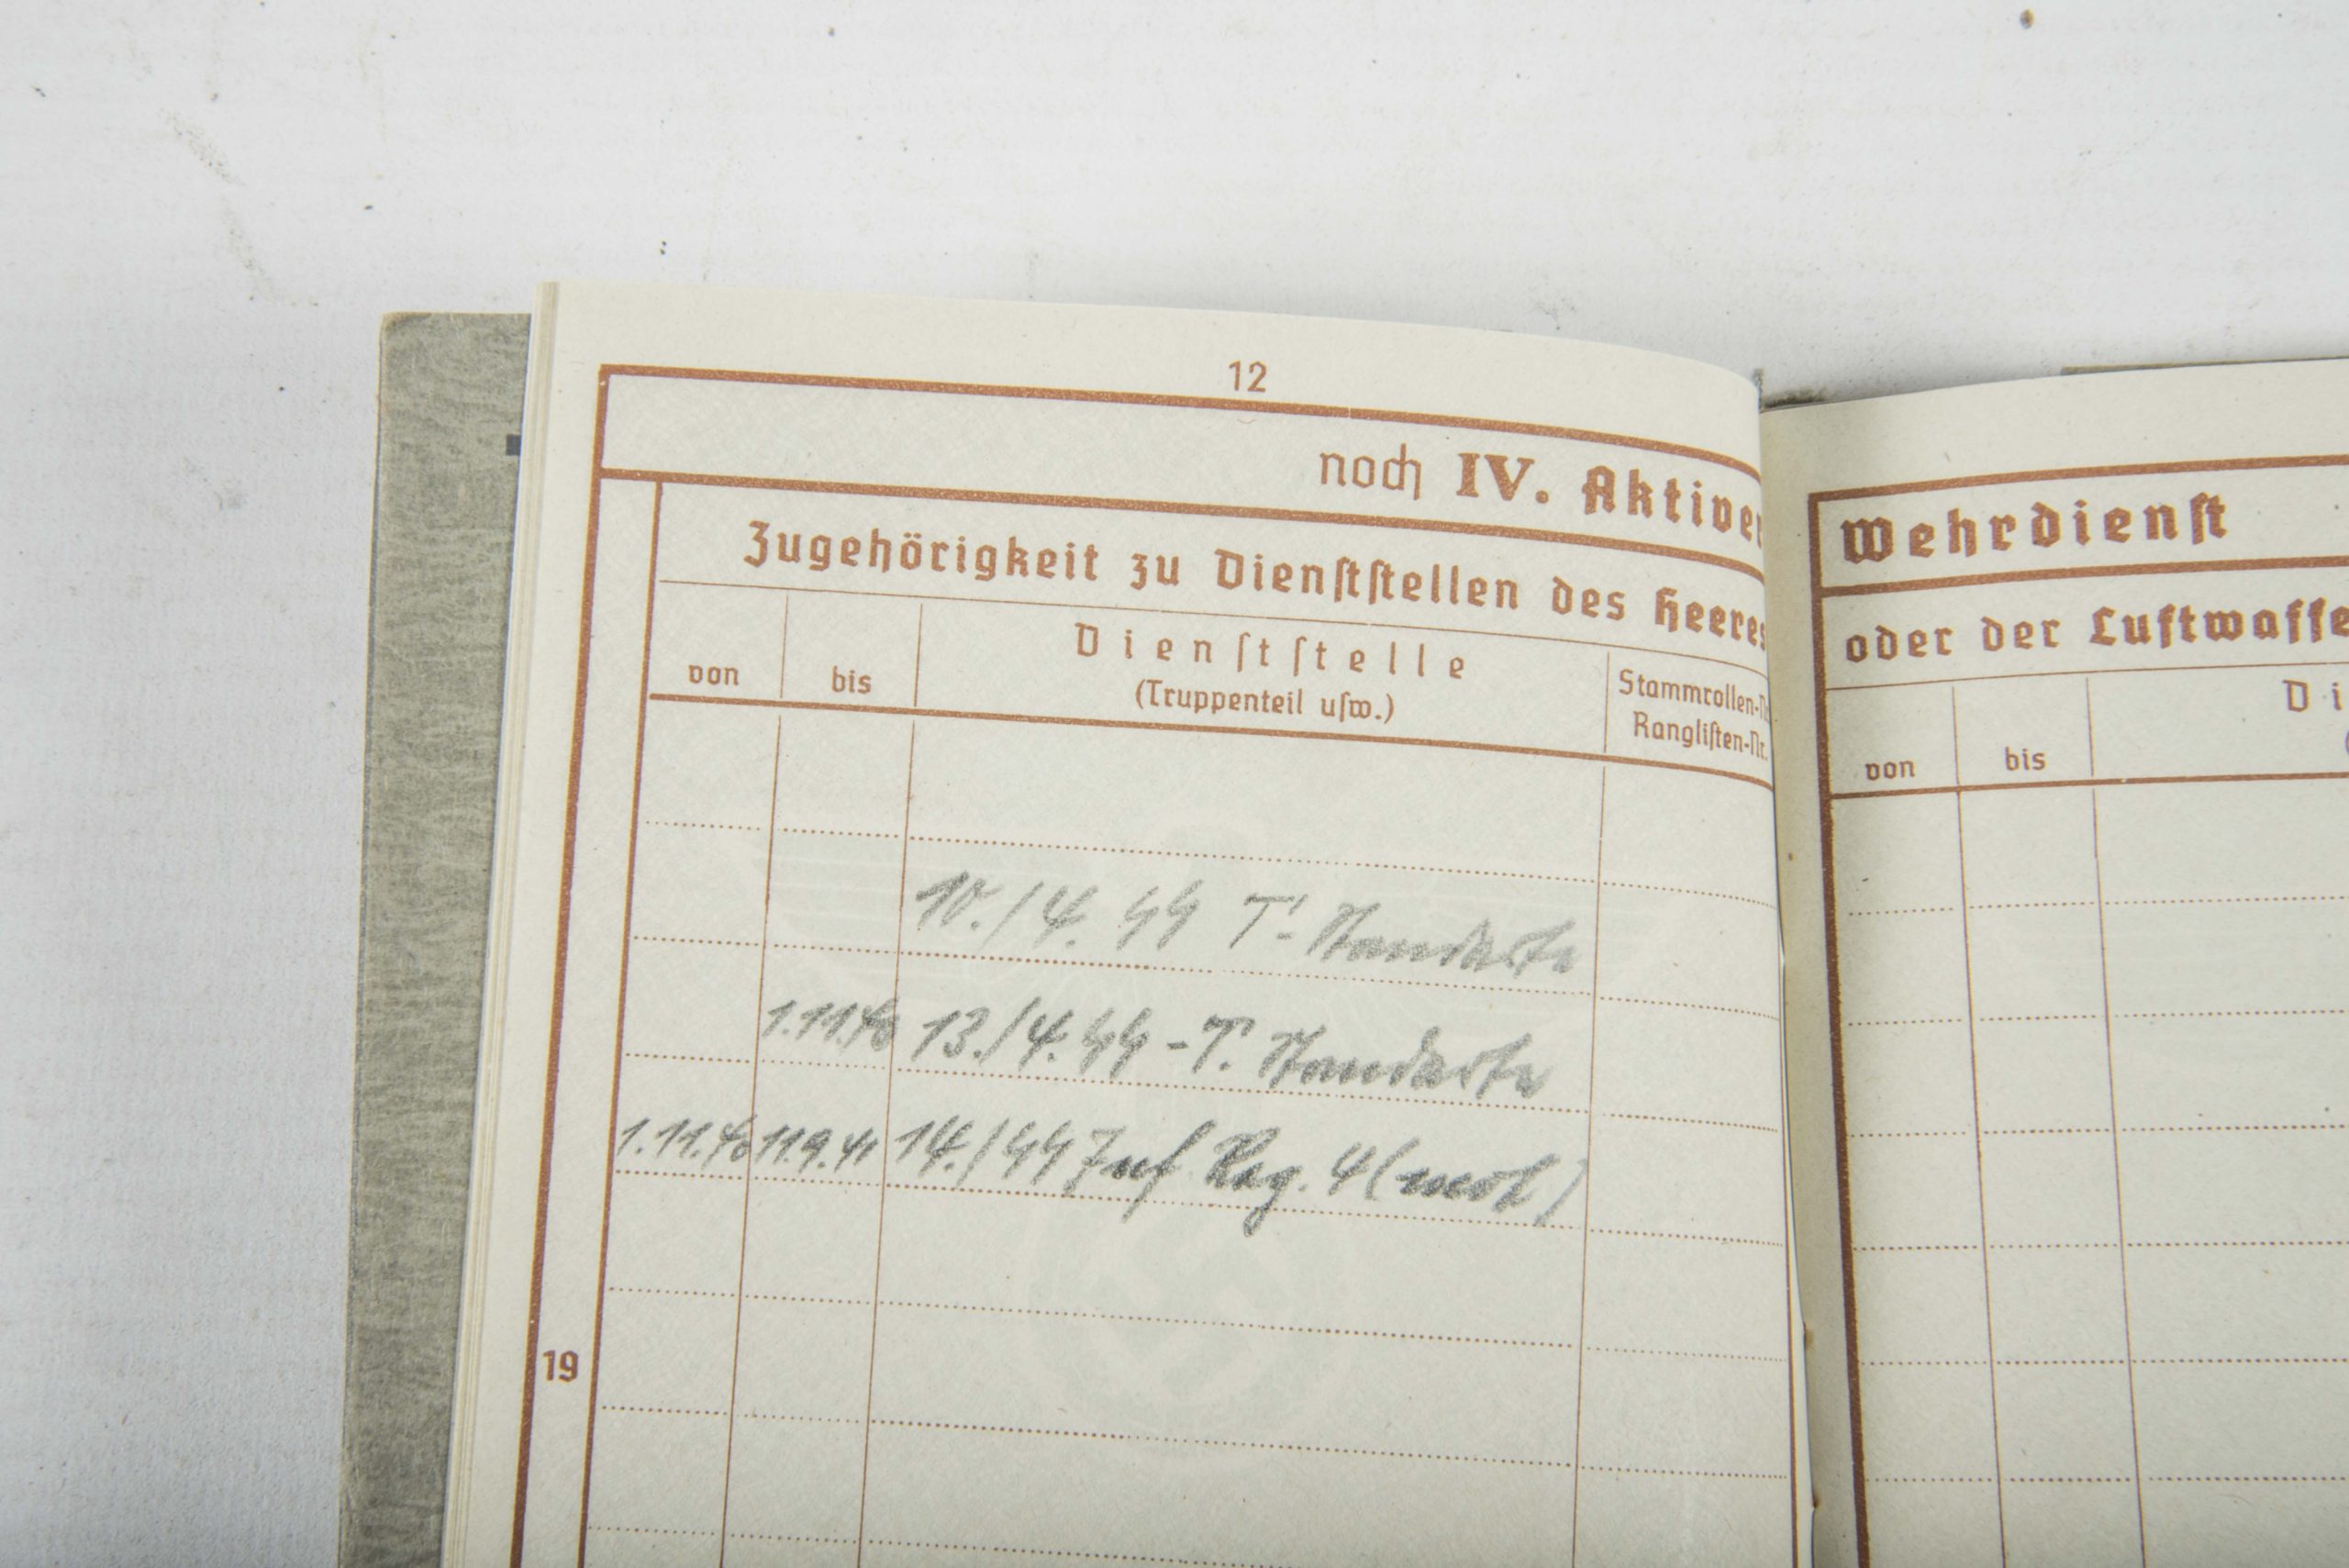 12
noch IV. Aktiver
Zugehörigkeit zu Dienststellen des Heeres
von
bis
Dienststelle
(Truppenteil usw.)
Stammrollen-Nr.
Ranglisten-Nr.
10./4. SS T. Standarte
1.11.40 13./4. SS - T. Standarte
1.11.40 11.9.41 14./SS Inf Reg. 4 (mot)
19
Wehrdienst
oder der Luftwaffe
Di
von
bis